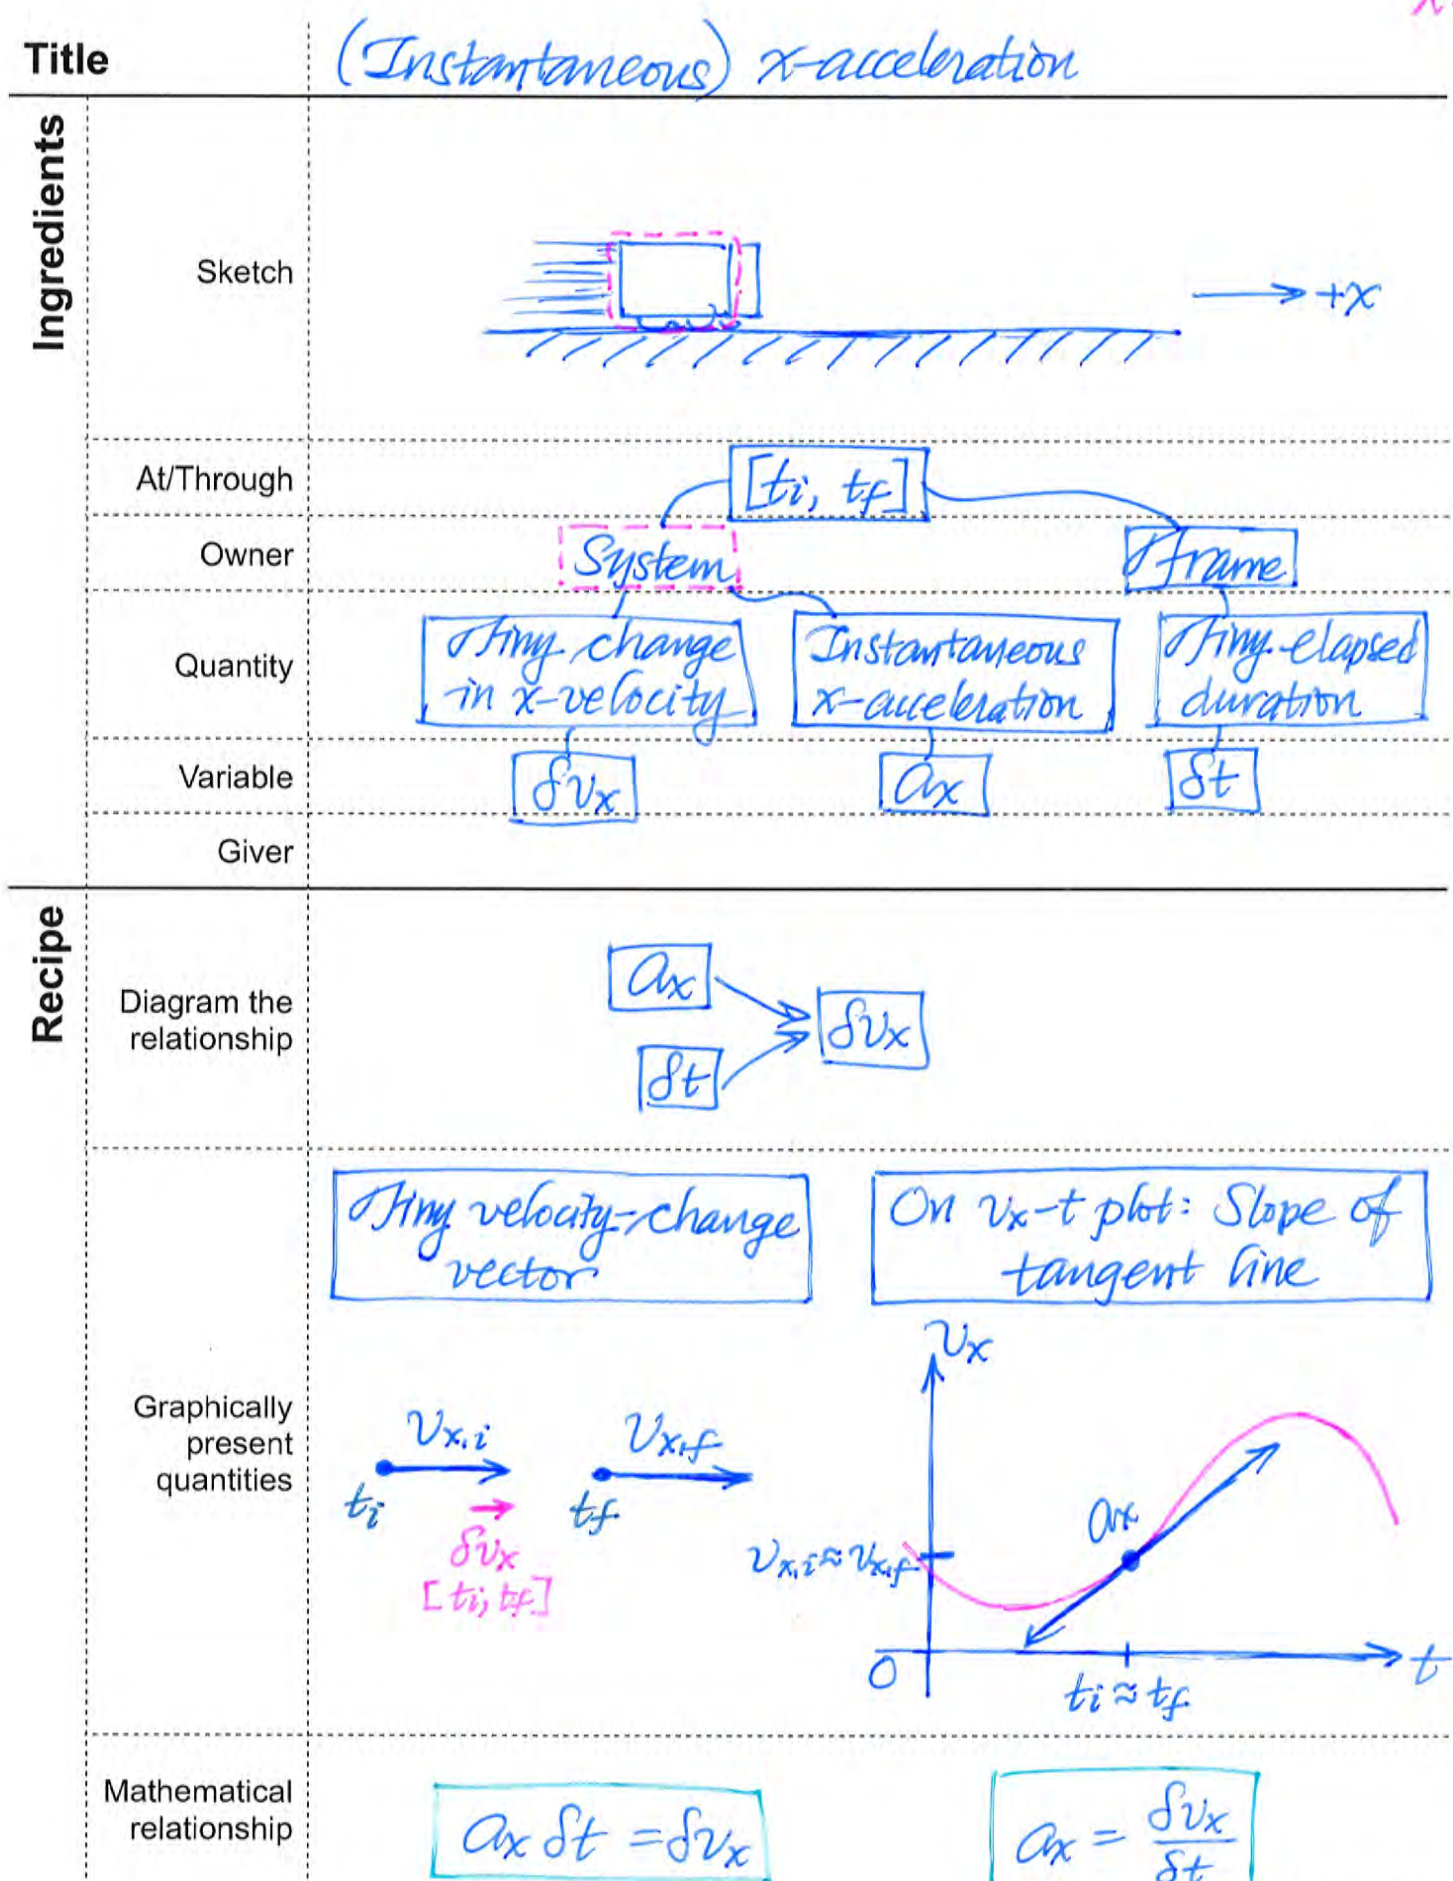 x
Title
(Instantaneous) x-acceleration
Ingredients
Sketch
+x
At/Through
[ti, tf]
Owner
System
frame
Quantity
Tiny change
in x-velocity
Instantaneous
x-acceleration
Tiny elapsed
duration
Variable
δvx
ax
δt
Giver
Recipe
Diagram the
relationship
ax
δt
δvx
Graphically
present
quantities
Tiny velocity-change
vector
On vx-t plot: Slope of
tangent line
vx,i
ti
vx,f
tf
δvx
[ti, tf]
vx
ax
vx,i ≈ vx,f
0
t
ti ≈ tf
Mathematical
relationship
ax δt = δvx
ax = δvx/δt